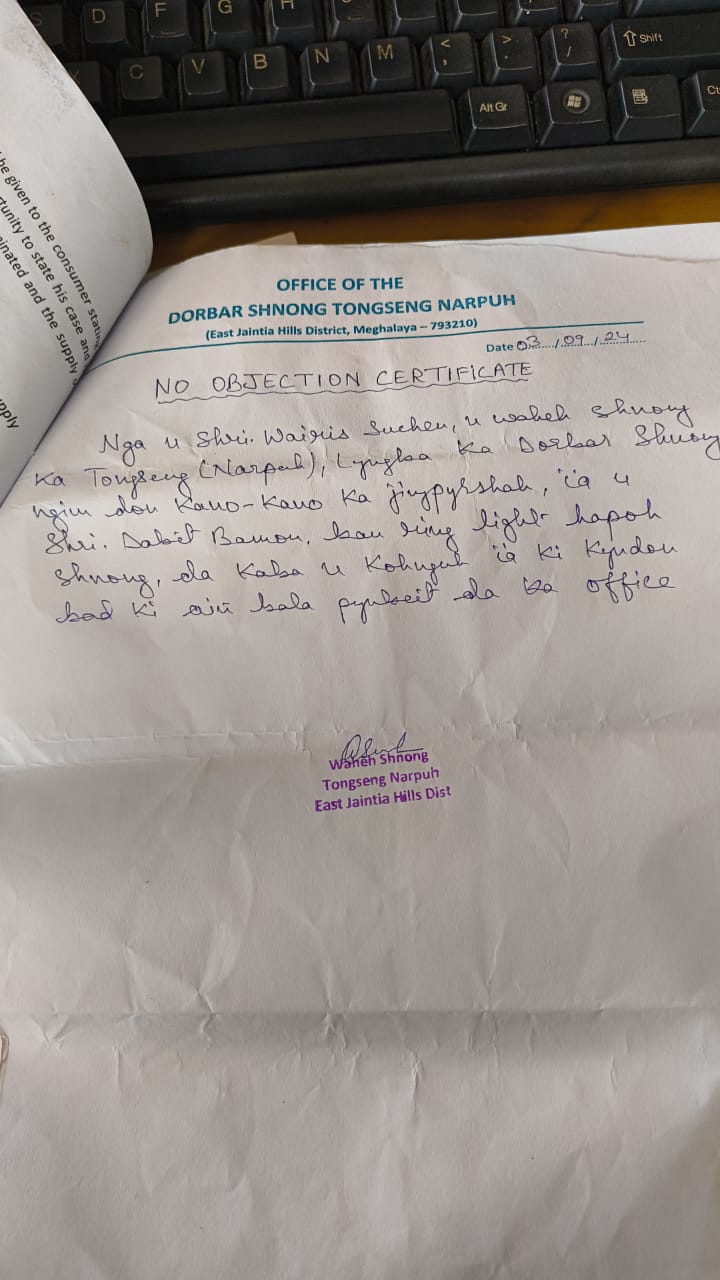 D F G H
C V B N M < , > . ? / Shift
Alt Gr
he given to the consumer
tunity to state his case and
inated and the supply
pply
OFFICE OF THE
DORBAR SHNONG TONGSENG NARPUH
(East Jaintia Hills District, Meghalaya – 793210)
Date 03/09/24
NO OBJECTION CERTIFICATE
Nga u Shri. Wairis Suchen, u waheh shnong
Ka Tongseng (Narpuh), Lyngba Ka Dorbar Shnong
ngim don Kano-Kano Ka jingpyrshah, ïa u
Shri. Dabet Bamon, ban ring light hapoh
shnong, da Kaba u Kohnguh ïa Ki Kyndon
bad Ki aiñ bala pynbeit da ka office
Waheh Shnong
Tongseng Narpuh
East Jaintia Hills Dist